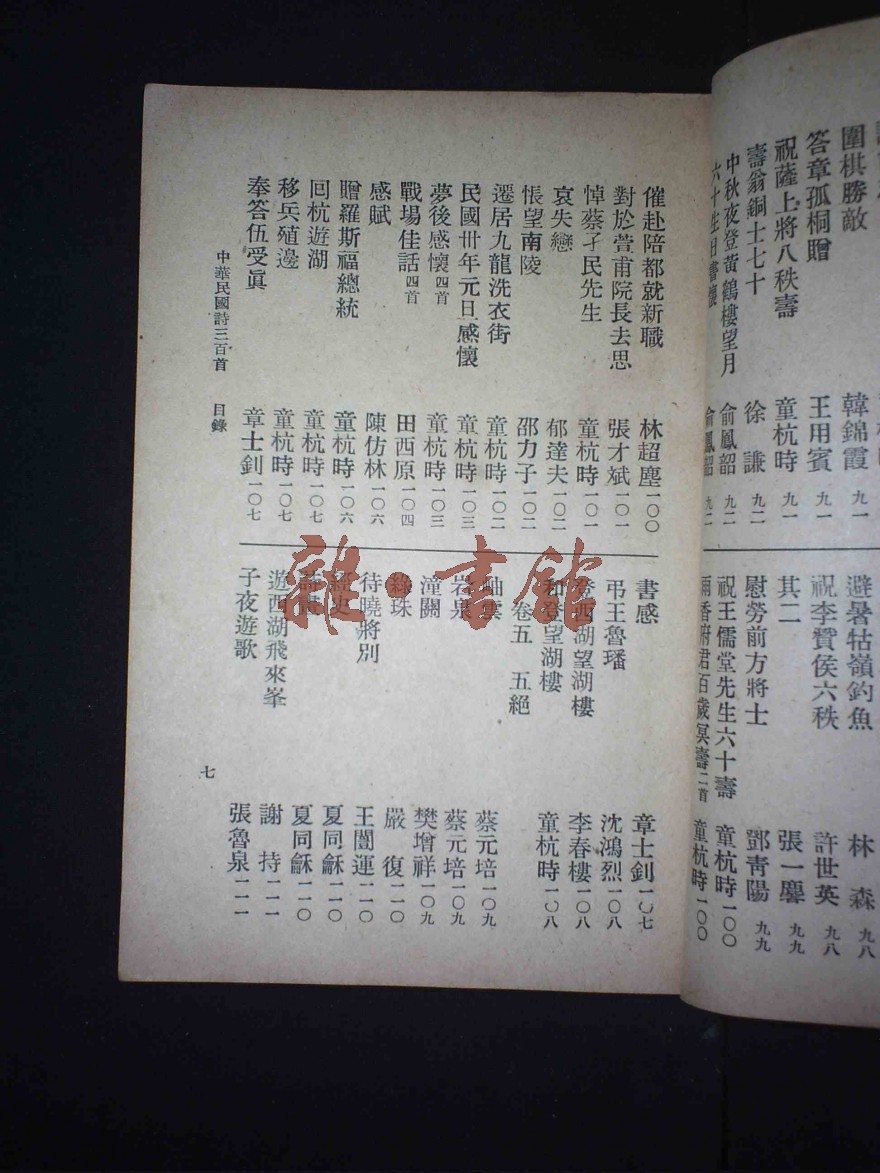 圍棋勝敵 韓錦霞 九一
答章孤桐贈 王用賓 九一
祝薩上將八秩壽 童杭時 九一
壽翁銅士七十 徐謙 九二
中秋夜登黃鶴樓望月 俞鳳韶 九二
六十生日書懷 俞鳳韶 九二
避暑牯嶺釣魚 林森 九八
祝李贊侯六秩 許世英 九八
其二 張一麐 九九
慰勞前方將士 鄧青陽 九九
祝王儒堂先生六十壽 童杭時 一〇〇
雨香府君百歲冥壽二首 童杭時 一〇〇
催赴陪都就新職 林超塵 一〇〇
對於萱甫院長去思 張才斌 一〇一
悼蔡孑民先生 童杭時 一〇一
哀失戀 郁達夫 一〇二
悵望南陵 邵力子 一〇二
遷居九龍洗衣街 童杭時 一〇二
民國卅年元日感懷 童杭時 一〇三
夢後感懷四首 童杭時 一〇三
戰場佳話四首 田西原 一〇四
感賦 陳仿林 一〇六
贈羅斯福總統 童杭時 一〇六
回杭遊湖 童杭時 一〇七
移兵殖邊 童杭時 一〇七
奉答伍受眞 章士釗 一〇七
書感 章士釗 一〇七
弔王魯璠 沈鴻烈 一〇八
登西湖望湖樓 李春樓 一〇八
和登望湖樓 童杭時 一〇八
卷五 五絕
岫雲 蔡元培 一〇九
岩泉 蔡元培 一〇九
潼關 樊增祥 一〇九
綠珠 嚴復 一一〇
待曉將別 王闓運 一一〇
經史 夏同龢 一一〇
詩書 夏同龢 一一〇
遊西湖飛來峯 謝持 一一一
子夜遊歌 張魯泉 一一一
中華民國詩三百首 目錄
七
雜·書館